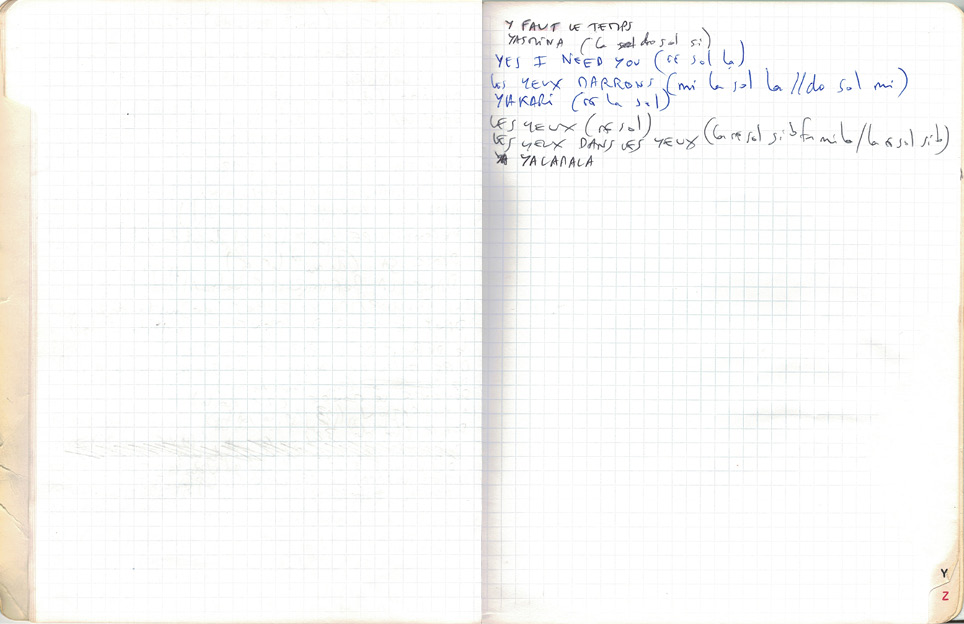 Y FAUT LE TEMPS
YASMINA (la do sol si)
YES I NEED YOU (ré sol la)
LES YEUX MARRONS (mi la sol la // do sol mi)
YAKARI (ré la sol)
LES YEUX (ré sol)
LES YEUX DANS LES YEUX (la ré sol sib fa mi la / la ré sol sib)
YALAMALA
Y
Z